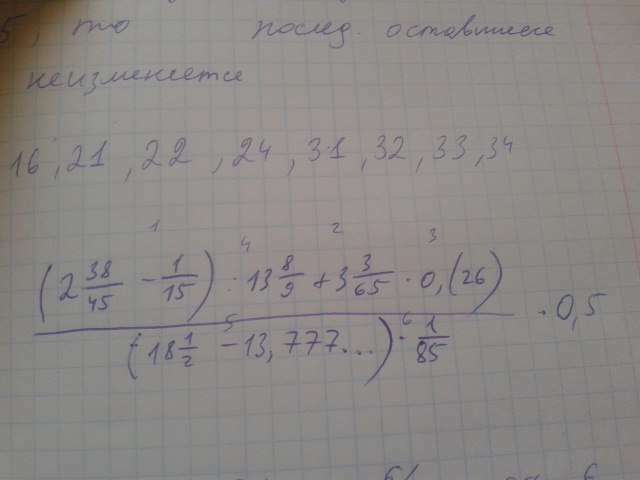 5, то послед. оставшиеся
неизменяется
16, 21, 22, 24, 31, 32, 33, 34
1 4 2 3
(2 38/45 - 1/15) : 13 8/9 + 3 3/65 · 0,(26)
5 6
(18 1/2 - 13,777...) · 1/85
· 0,5